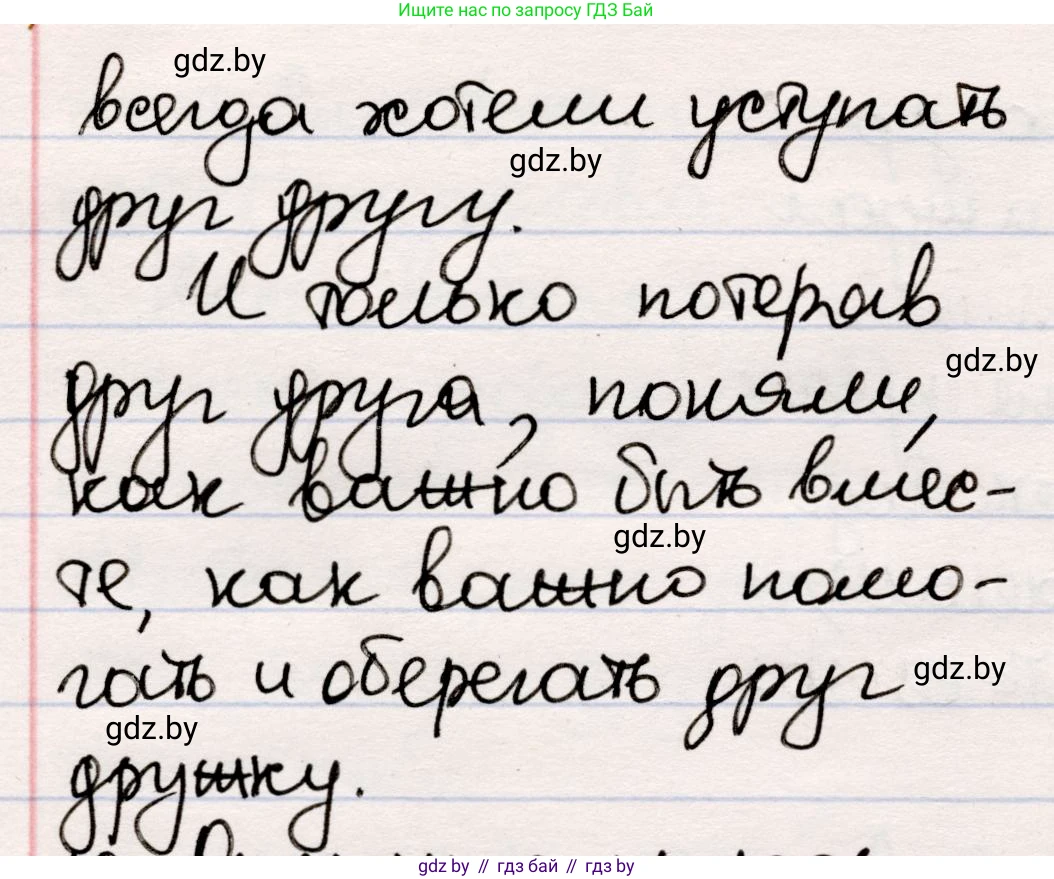 Ищите нас по запросу ГДЗ Бай
gdz.by
всегда хотели уступать
gdz.by
друг другу.
И только потеряв
gdz.by
друг друга, поняли,
как важно быть вмес-
gdz.by
те, как важно помо-
гать и оберегать друг
gdz.by
gdz.by
дружку.
gdz.by // гдз бай // гдз by